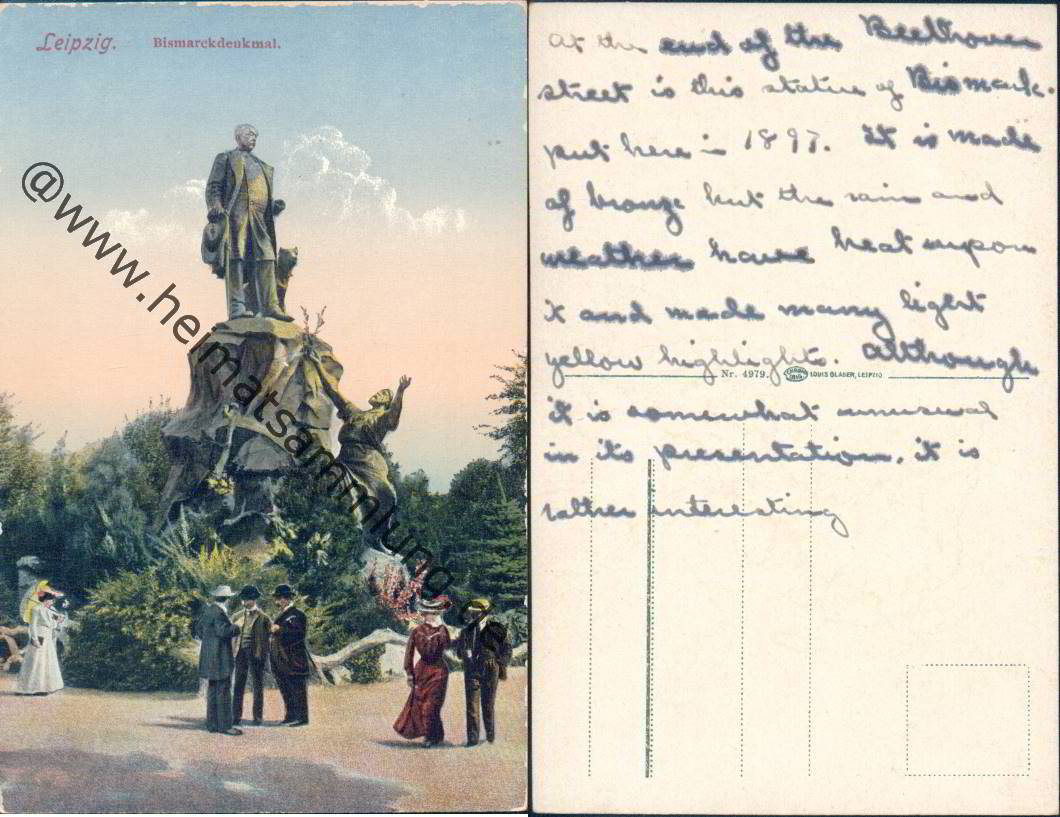 Leipzig. Bismarckdenkmal.
@www.heimatsammlung.de
At the end of the Beethoven
street is this statue of Bismark.
put here in 1897. It is made
of bronze but the rain and
weather have beat upon
it and made many light
yellow highlights. Although
Nr. 4979. LOUIS GLASER, LEIPZIG
it is somewhat unusual
in its presentation, it is
rather interesting